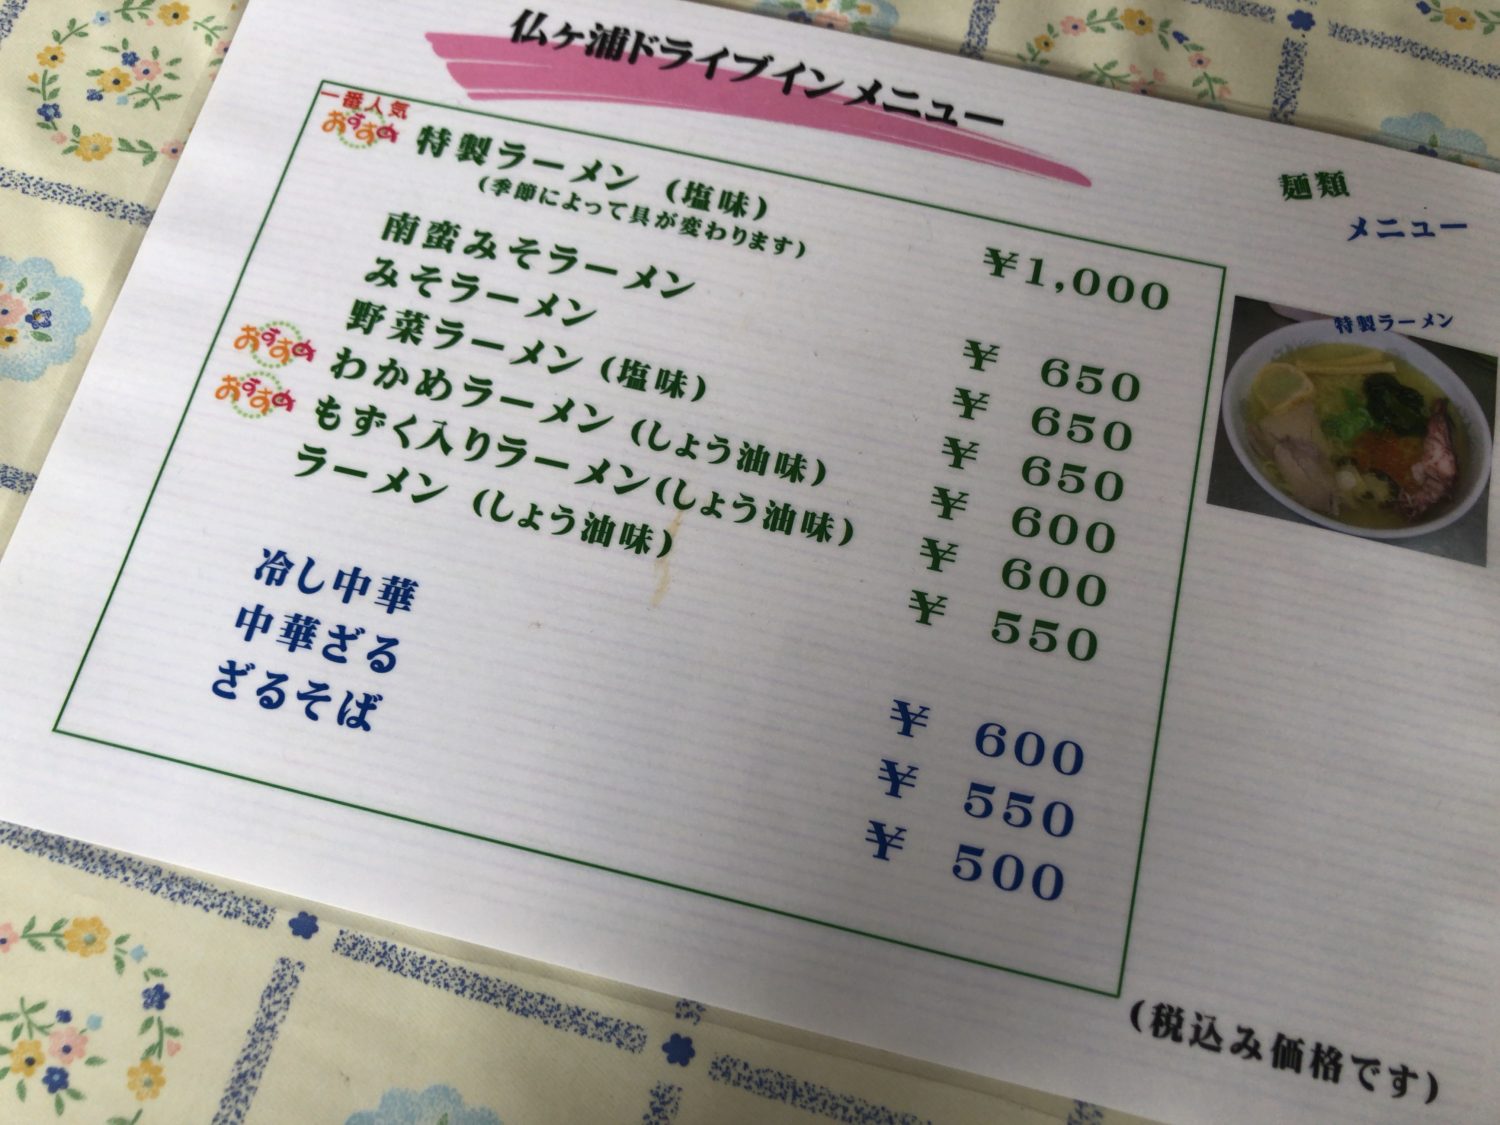 仏ヶ浦ドライブインメニュー
麺類
メニュー
一番人気
おすすめ
特製ラーメン (塩味) ¥1,000
(季節によって具が変わります)
南蛮みそラーメン ¥ 650
みそラーメン ¥ 650
野菜ラーメン (塩味) ¥ 650
おすすめ わかめラーメン (しょう油味) ¥ 600
おすすめ もずく入りラーメン(しょう油味) ¥ 600
ラーメン (しょう油味) ¥ 550
冷し中華 ¥ 600
中華ざる ¥ 550
ざるそば ¥ 500
特製ラーメン
(税込み価格です)